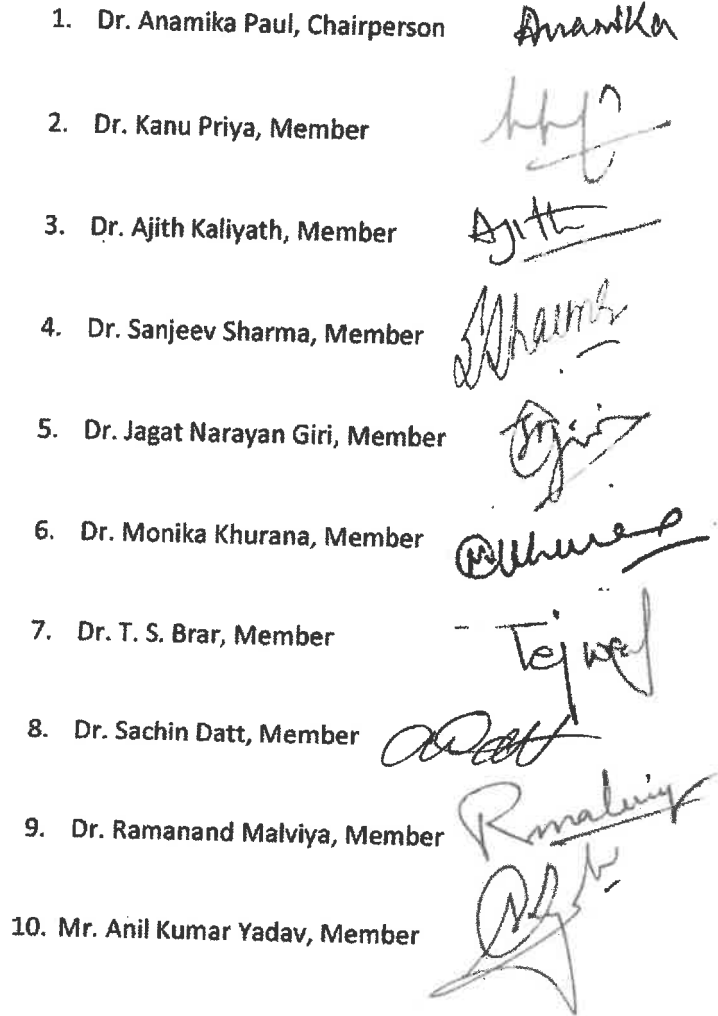 1. Dr. Anamika Paul, Chairperson Anamika
2. Dr. Kanu Priya, Member
3. Dr. Ajith Kaliyath, Member Ajith
4. Dr. Sanjeev Sharma, Member SSharma
5. Dr. Jagat Narayan Giri, Member
6. Dr. Monika Khurana, Member
7. Dr. T. S. Brar, Member
8. Dr. Sachin Datt, Member
9. Dr. Ramanand Malviya, Member
10. Mr. Anil Kumar Yadav, Member